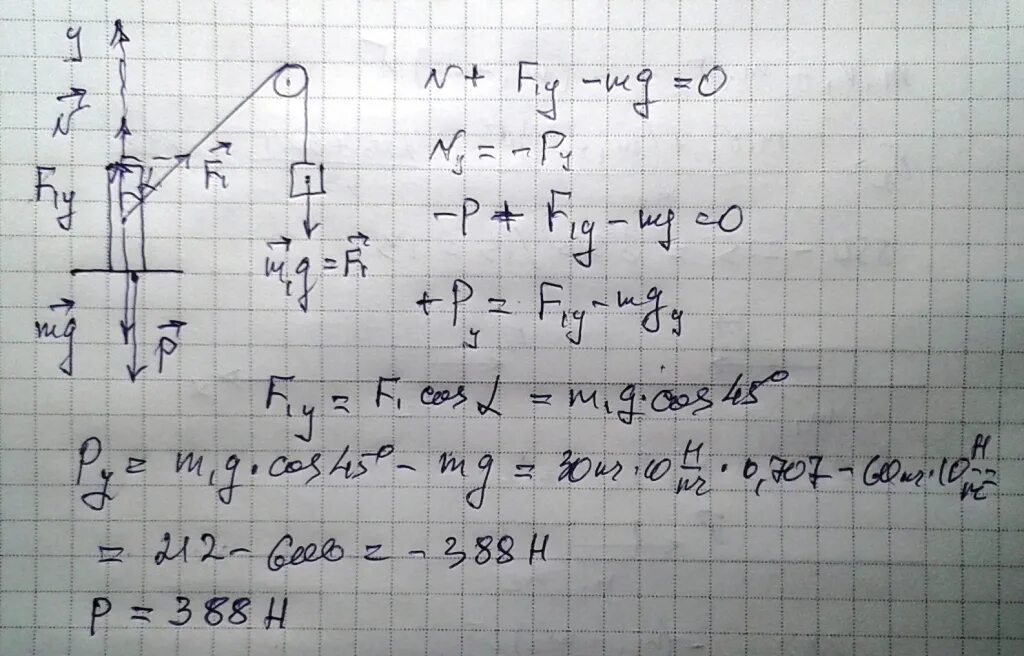 y
N⃗
F₁y
F⃗₁
m⃗₁g = F⃗₁
m⃗g
P⃗
N + F₁y - mg = 0
Ny = -Py
-P + F₁y - mg = 0
+Py = F₁y - mgy
F₁y = F₁ cos α = m₁g · cos 45°
Py = m₁g · cos 45° - mg = 30 кг · 10 Н/кг · 0,707 - 60 кг · 10 Н/кг =
= 212 - 600 = - 388 Н
P = 388 Н